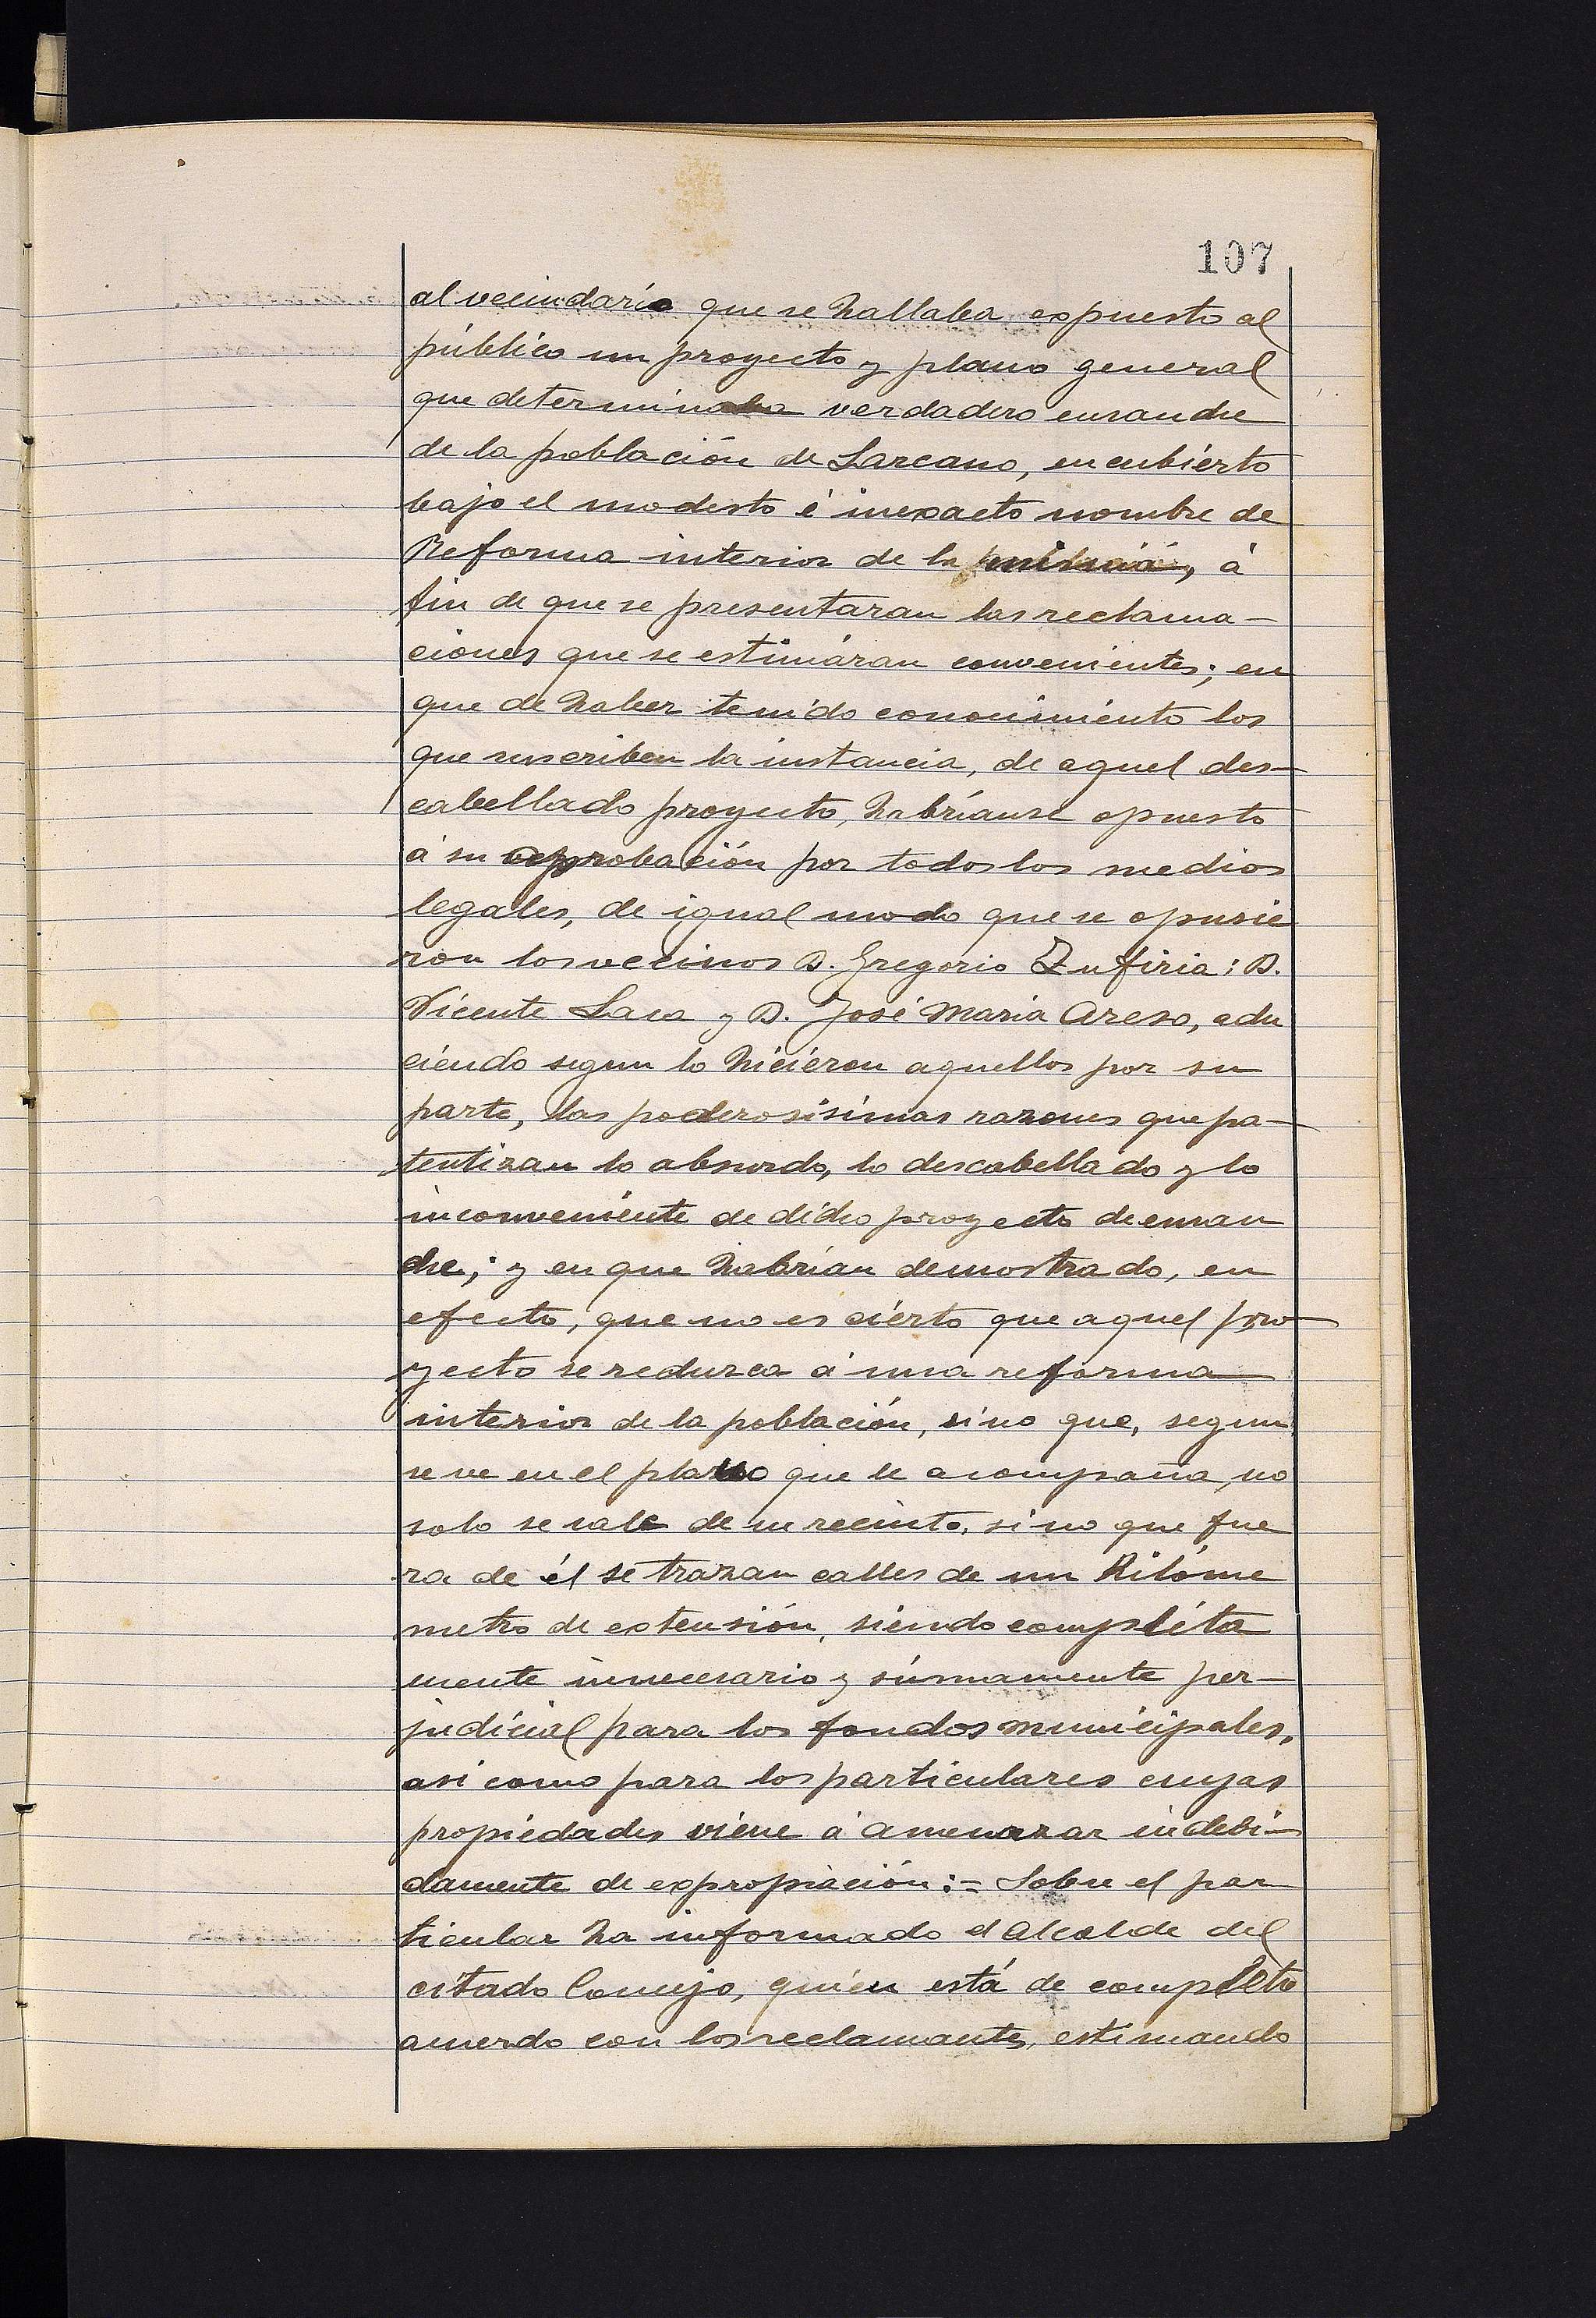 107
al vecindario que se hallaba expuesto al
público un proyecto y plano general
que determinaba verdadero ensanche
de la población de Lazcano, encubierto
bajo el modesto é inexacto nombre de
Reforma interior de la misma, á
fin de que se presentaran las reclama-
ciones que se estimáran convenientes; en
que de haber tenido conocimiento los
que suscriben la instancia, de aquel des-
cabellado proyecto, habríanse opuesto
á su aprobación por todos los medios
legales, de igual modo que se opusie
ron los vecinos D. Gregorio Zufiria; D.
Vicente Lasa y D. José Maria Areso, adu
ciendo segun lo hicieron aquellos por su
parte, las poderosisimas razones que pa-
tentizan lo absurdo, lo descabellado y lo
inconveniente de dicho proyecto de ensan
che; y en que habrían demostrado, en
efecto, que no es cierto que aquel pro
yecto se reduzca á una reforma
interior de la población, sino que, segun
se ve en el plano que le acompaña, no
solo se sale de su recinto, sino que fue
ra de él se trazan calles de un Kilóme
metro de extensión, siendo completa
mente innecesario y súmamente per-
judicial para los fondos municipales,
asi como para los particulares cuyas
propiedades viene á amenazar indebi-
damente de expropiación:= Sobre el par
ticular ha informado el Alcalde del
citado Concejo, quien está de completo
acuerdo con los reclamantes, estimando